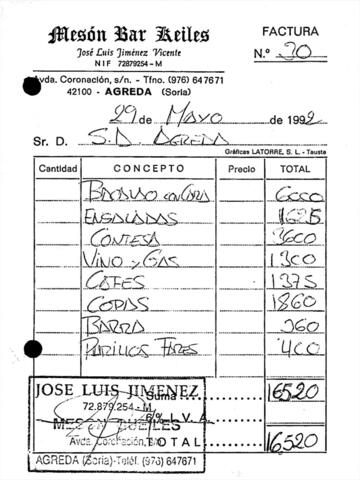 Mesón Bar Keiles
José Luis Jiménez Vicente
NIF 72879254-M
Avda. Coronación, s/n. - Tfno. (976) 647671
42100 - AGREDA (Soria)
FACTURA
N.º 30
29 de MAYO de 1992
Sr. D. S.D AGREDA
Gráficas LATORRE, S. L. - Tauste
Cantidad CONCEPTO Precio TOTAL
6000
ENSALADAS 1625
CONTESA 3600
VINO y GAS 1300
CAFES 1375
COPAS 1860
BARRA 360
400
JOSE LUIS JIMENEZ
Suma 16520
72.879.254 - M
% I.V.A.
MESON QUEILES
Avda. Coronación,
TOTAL 16,520
AGREDA (Soria)-Teléf. (976) 647671